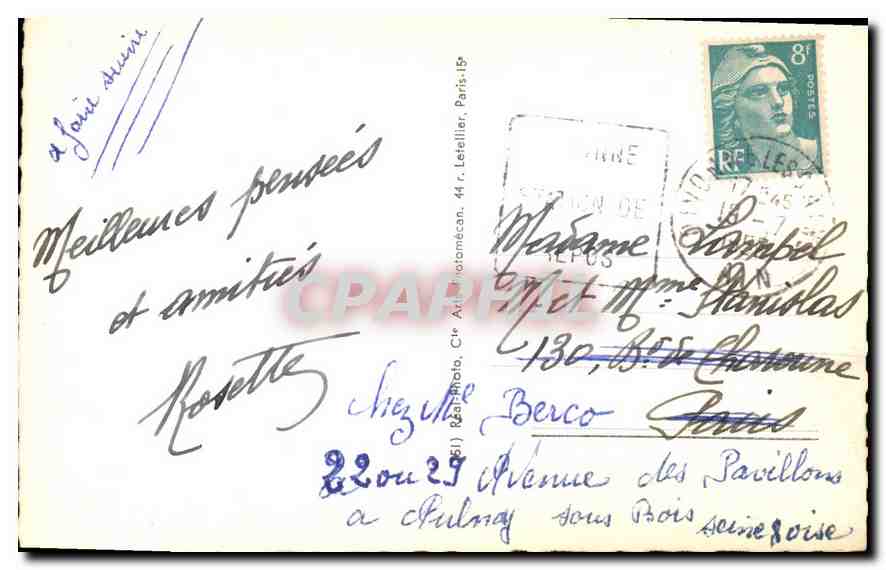 a faire suivre
Meilleures pensées
et amitiés
Rosette
(51) Real-Photo, Cie Art. Photomécan. 44 r. Letellier, Paris-15e
8f
POSTES
RF
STATION DE
REPOS
17-45
15-7
AIN
Madame
M et Mme Stanislas
130, Bd de Charonne
Paris
chez Me Berco
22 ou 29 Avenue des Pavillons
a Aulnay sous Bois
seine & oise
CPAPHIL